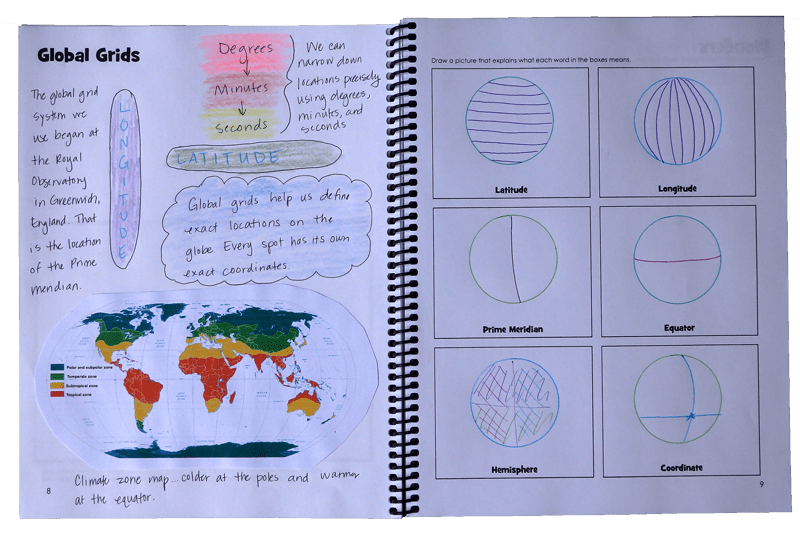 Global Grids
The global grid
system we
use began at
the Royal
Observatory
in Greenwich,
England. That
is the location
of the Prime
meridian.
LONGITUDE
Degrees
Minutes
Seconds
We can
narrow down
locations precisely
using degrees,
minutes, and
seconds
LATITUDE
Global grids help us define
exact locations on the
globe. Every spot has its own
exact coordinates.
Polar and subpolar zone
Temperate zone
Subtropical zone
Tropical zone
Climate zone map...colder at the poles and warmer
at the equator.
8
Draw a picture that explains what each word in the boxes means.
Latitude
Longitude
Prime Meridian
Equator
Hemisphere
Coordinate
9